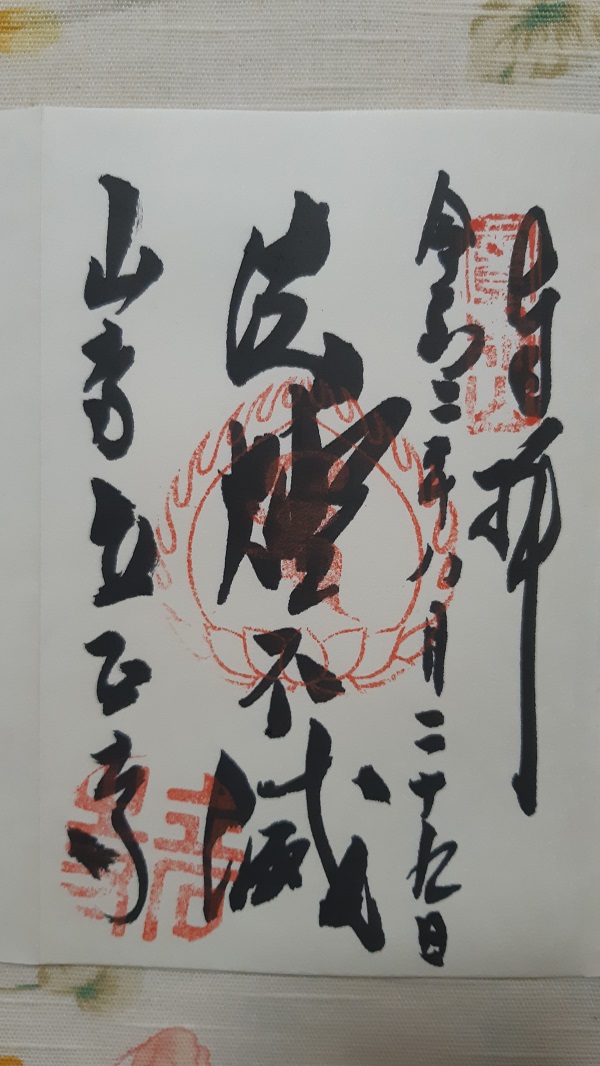 奉拝
令和三年八月二十九日
法燈不滅
山寺立石寺